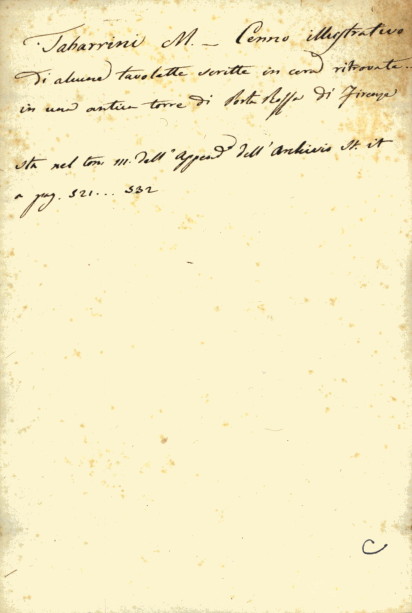 Tabarrini M. — Cenno illustrativo
di alcune tavolette scritte in cera ritrovate..
in una antica torre di Porta Rossa di Firenze
sta nel tom. III. dell' Append. dell' Archivio St. it
a pag. 521... 532
C